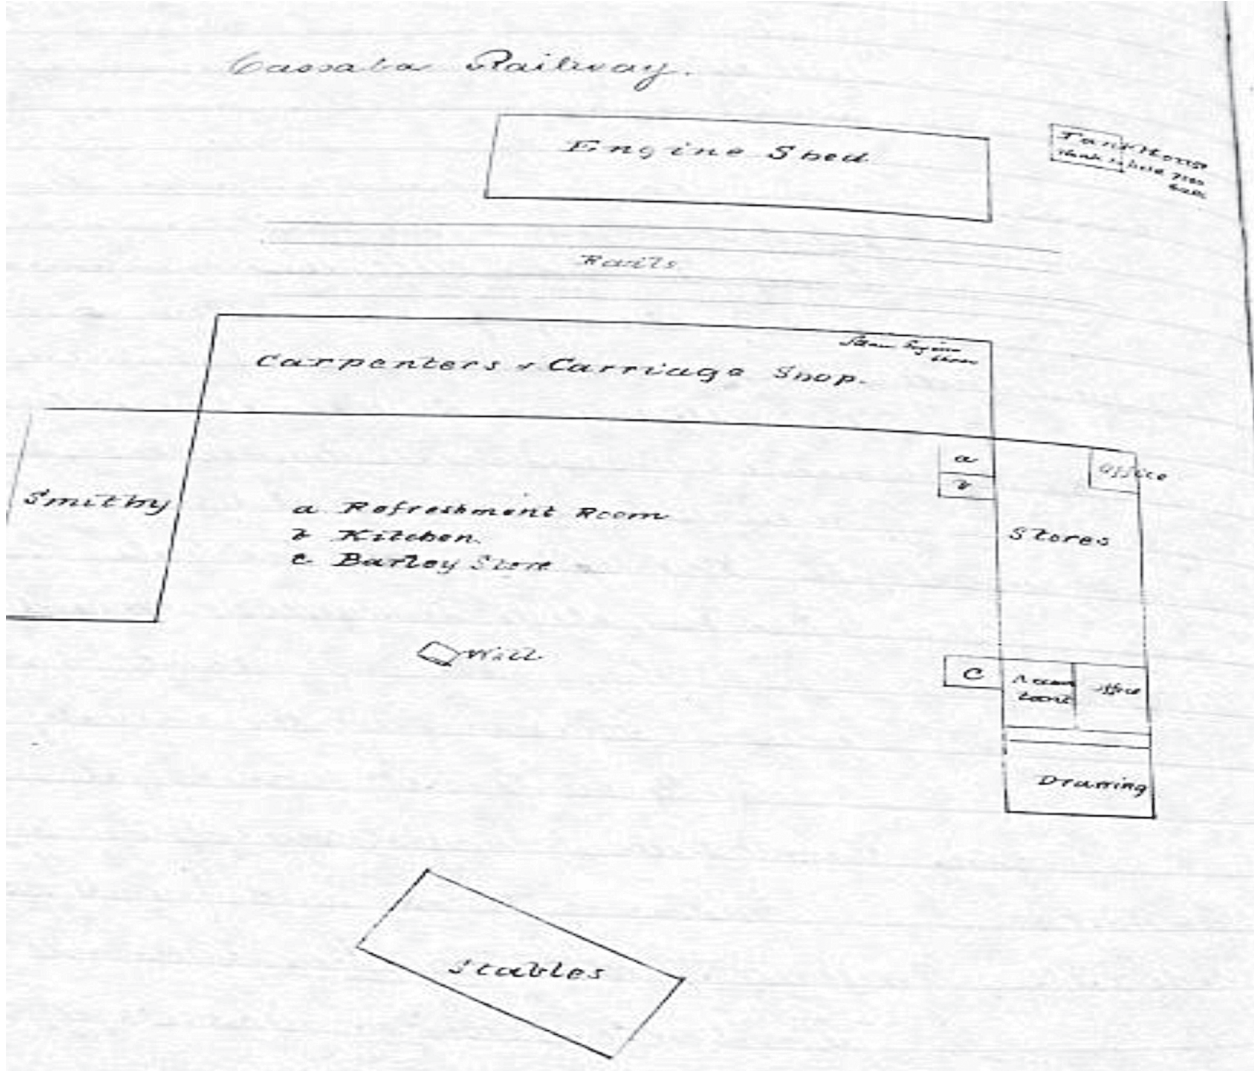 Cassaba Railway.
Engine Shed
Tank House
Tank to hold 7500
Galls
Rails
Steam Engine
Carpenters & Carriage Shop.
a
Office
b
Smithy
a Refreshment Room
b Kitchen.
c Barley Store
Stores
Well
C
Accoun
tant
office
Drawing
Stables